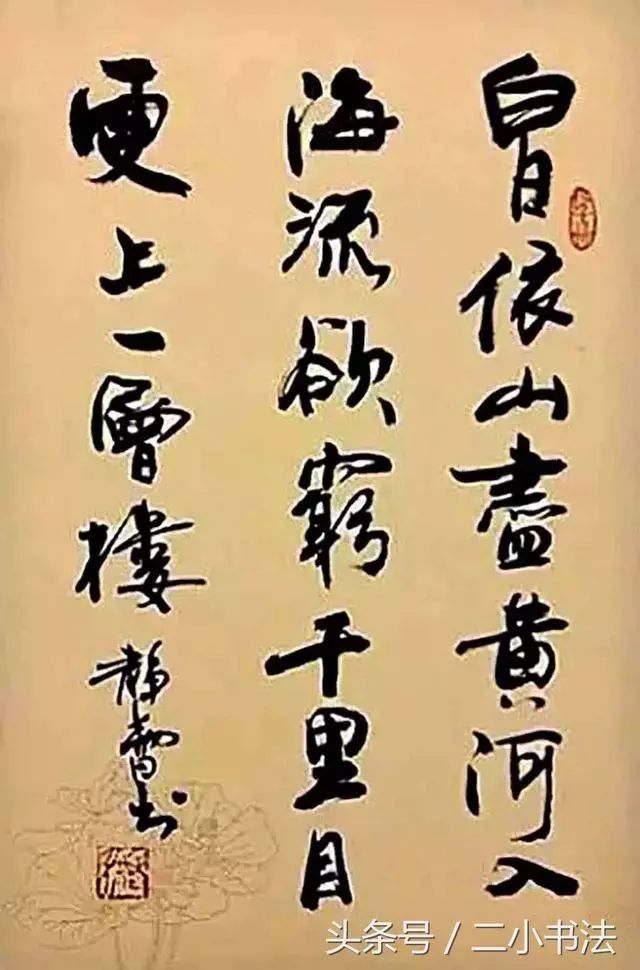 白日依山盡黄河入
海流欲窮千里目
更上一層樓
書
头条号 / 二小书法